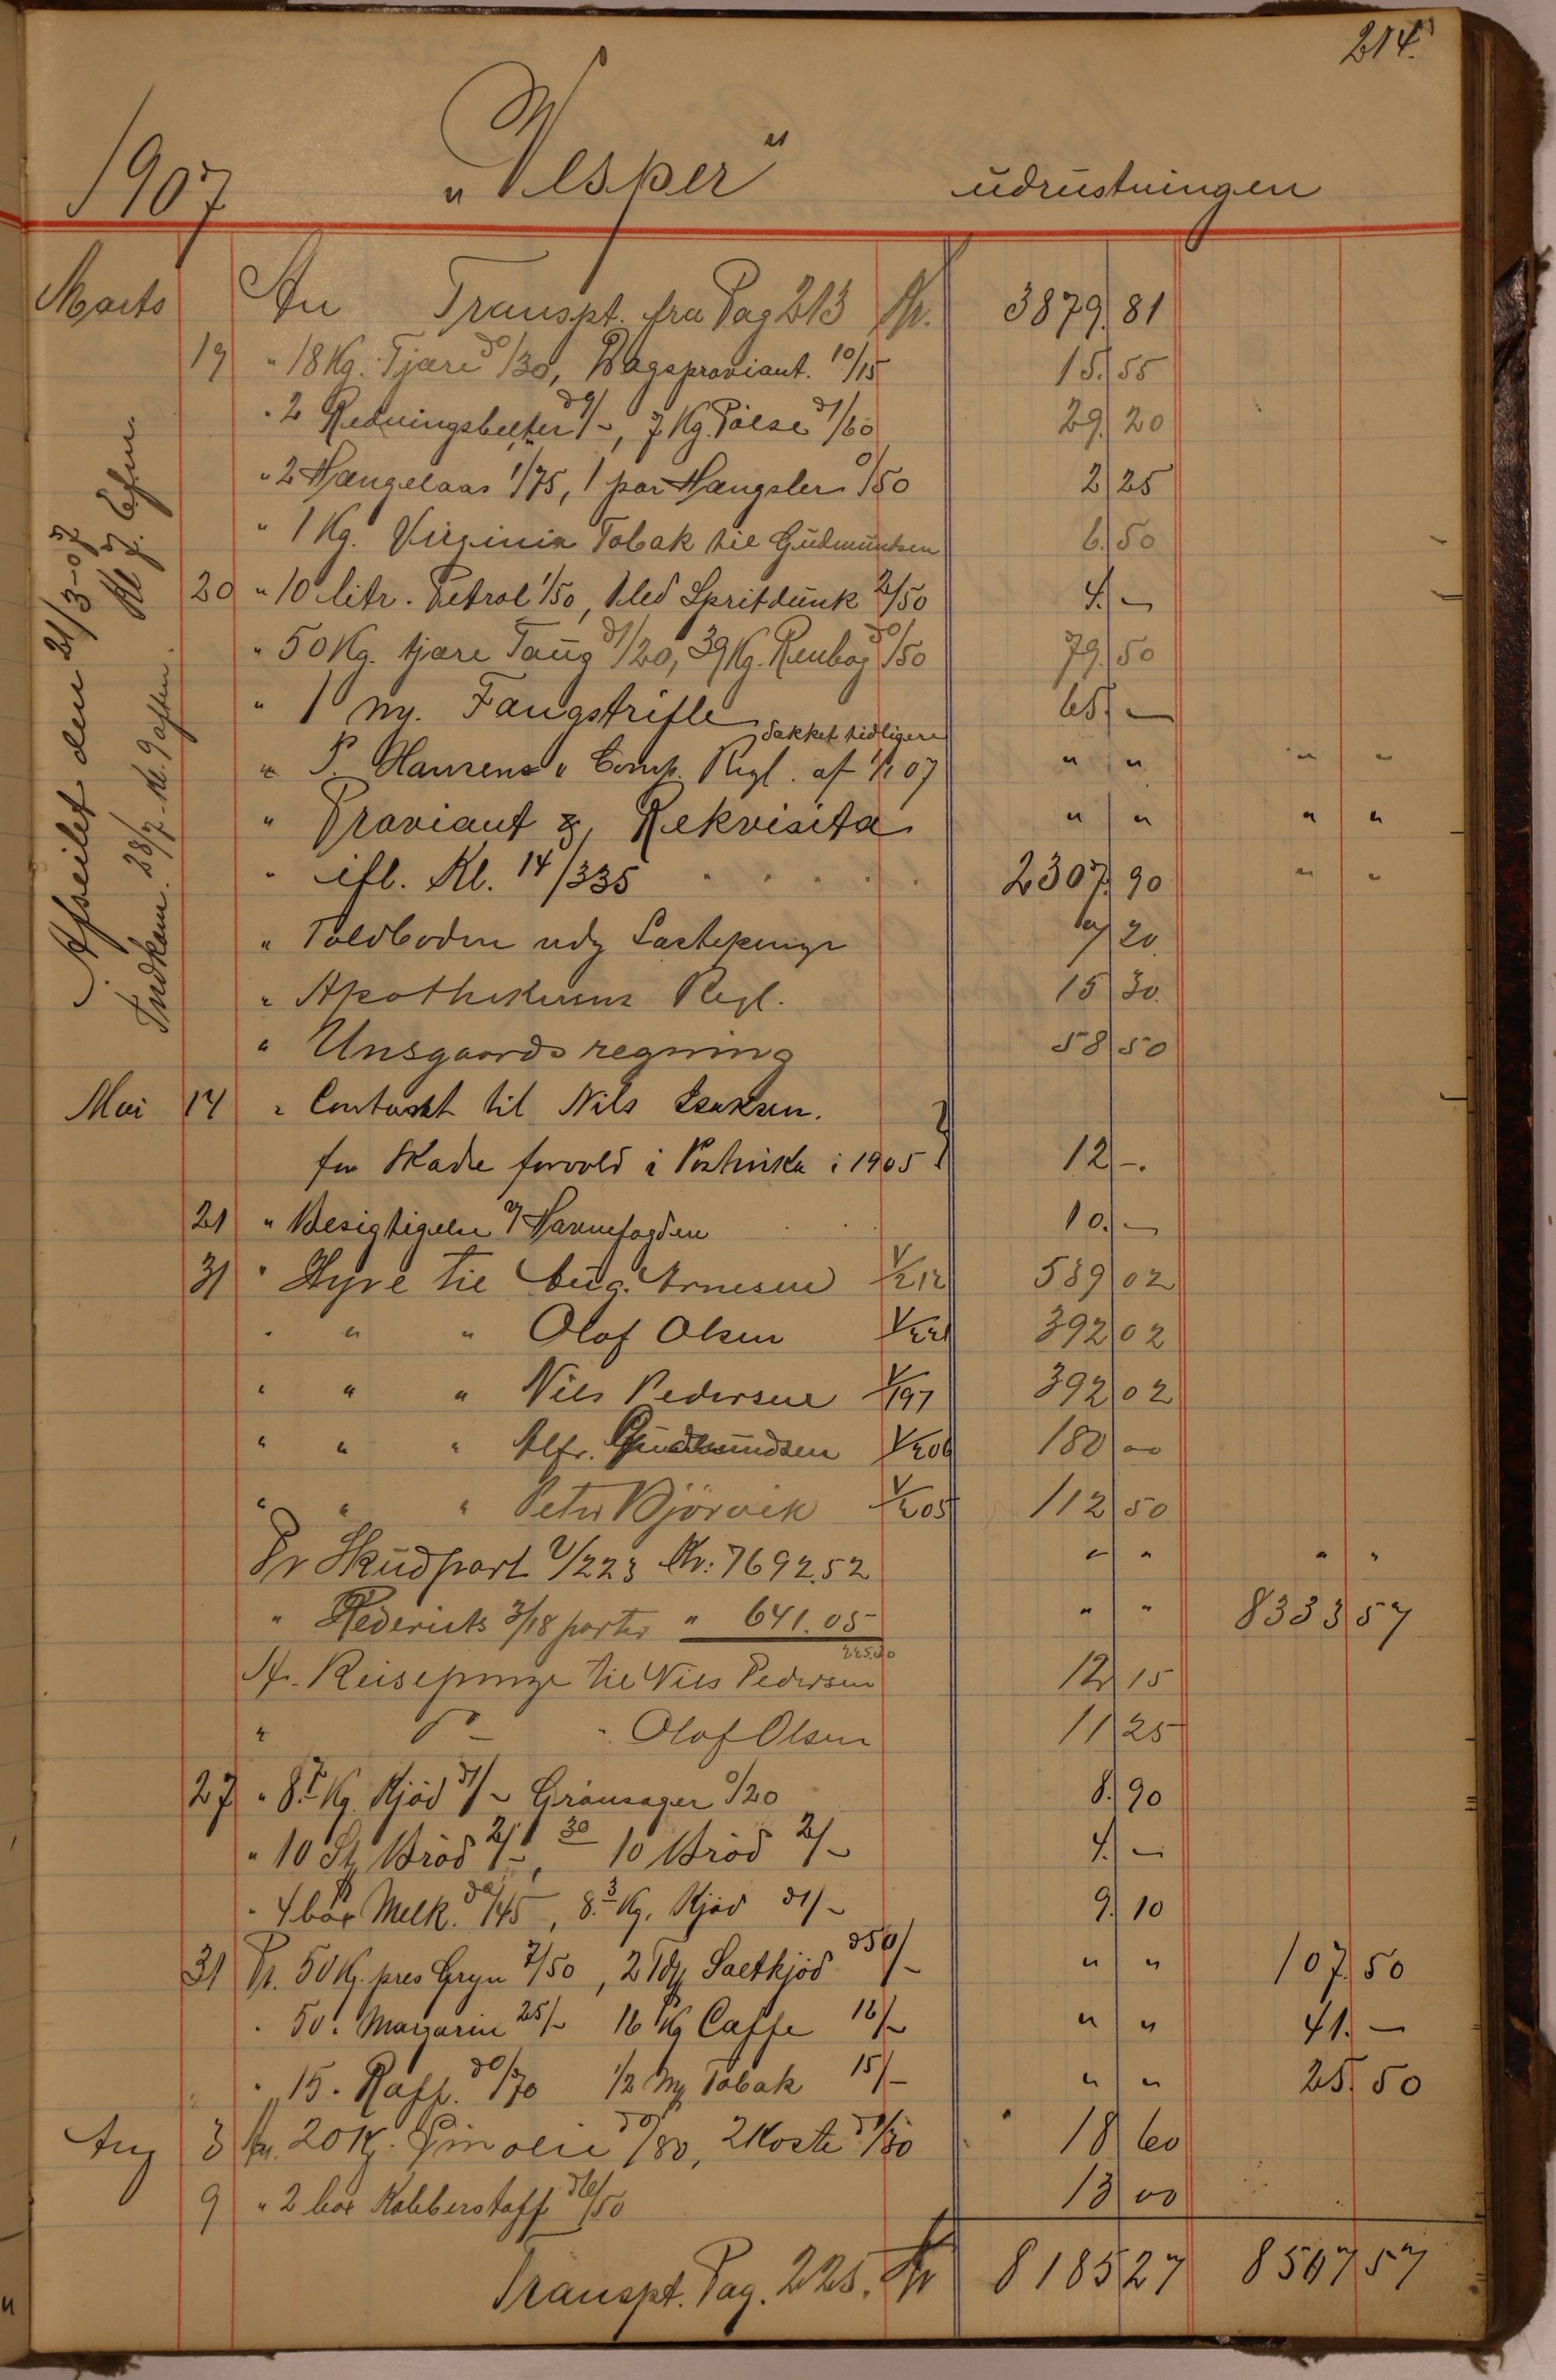 214.
1907 „Vesper" udrustningen
Marts An Transpt. fra Pag 213 Kr. 3879 81
19 " 18 Kg. Tjære à 0/30, Bagsproviant. 10/15 15. 55
" 2 Redningsbelter à 9/-, 7 Kg. Pölse à 1/60 29. 20
" 2 Hængelaas 1/75, 1 par Hængsler 0/50 2 25
" 1 Kg. Virginia Tobak til Gudmundsen 6. 50
20 " 10 litr. Petrol 1/50, 1 led Spritdunk 2/50 4. -
" 50 Kg. tjære Taug à 1/20, 39 Kg. à 0/50 79. 50
" 1 ny. Fangstrifle 65. -
" P. Hansens & Comp. Regl. af 1/1 07 takket tidligere " " " "
" Proviant & Rekvisita " " " "
" ifl. Kl. 14/335 2307. 90 " "
" Toldboden udg Lastepenge 20.
" Apothekerens Regl. 15 30.
" Unsgaards regning 58 50
Afseilet den 21/3-07 Kl 7. Efm.
Indkom. 28/7 - Kl. 9 aften.
Mai 14 " Contant til Nils Isaksen.
for Skade forvold i i 1905 12 -.
21 " Besigtigelse af Havnefogden 10. -
31 " Hyre til Aug. Arnesen V/212 589 02
" " " Olof Olsen V/221 392 02
" " " Nils Pedersen V/197 392 02
" " " Alfr. Gudmundsen V/206 180 00
" " " Peter Björvik V/205 112 50
Pr Skudpart V/223 Kr: 7692.52 " " " "
" Rederiets 3/18 parter " 641.05 " " 8333 57
225.30
An. Reisepenge til Nils Pedersen 12 15
" do - " Olof Olsen 11 25
27 " 8.5 Kg. Kjöd à 1/- Grönsager 0/20 8. 90
" 10 St Bröd 2/-, 30 10 Bröd 2/- 4. -
" 4 box Melk. à 0/45, 8.3 Kg. Kjöd à 1/- 9. 10
31 Pr. 50 Kg. pres Gryn 7/50, 2 Tdr Saltkjöd à 50/- " " 107. 50
" 50 " Margarin 25/- 16 Kg Caffe 16/- " " 41. -
" 15 " Raff. à 0/70 1/2 Tobak 15/- " " 25. 50
Aug 3 An. 20 Kg. Linolie à 0/80, 2 Koste à 1/30 18 60
9 " 2 box Kobberstoff à 6/50 13 00
Transpt. Pag. 225. Kr 8185 27 8507 57